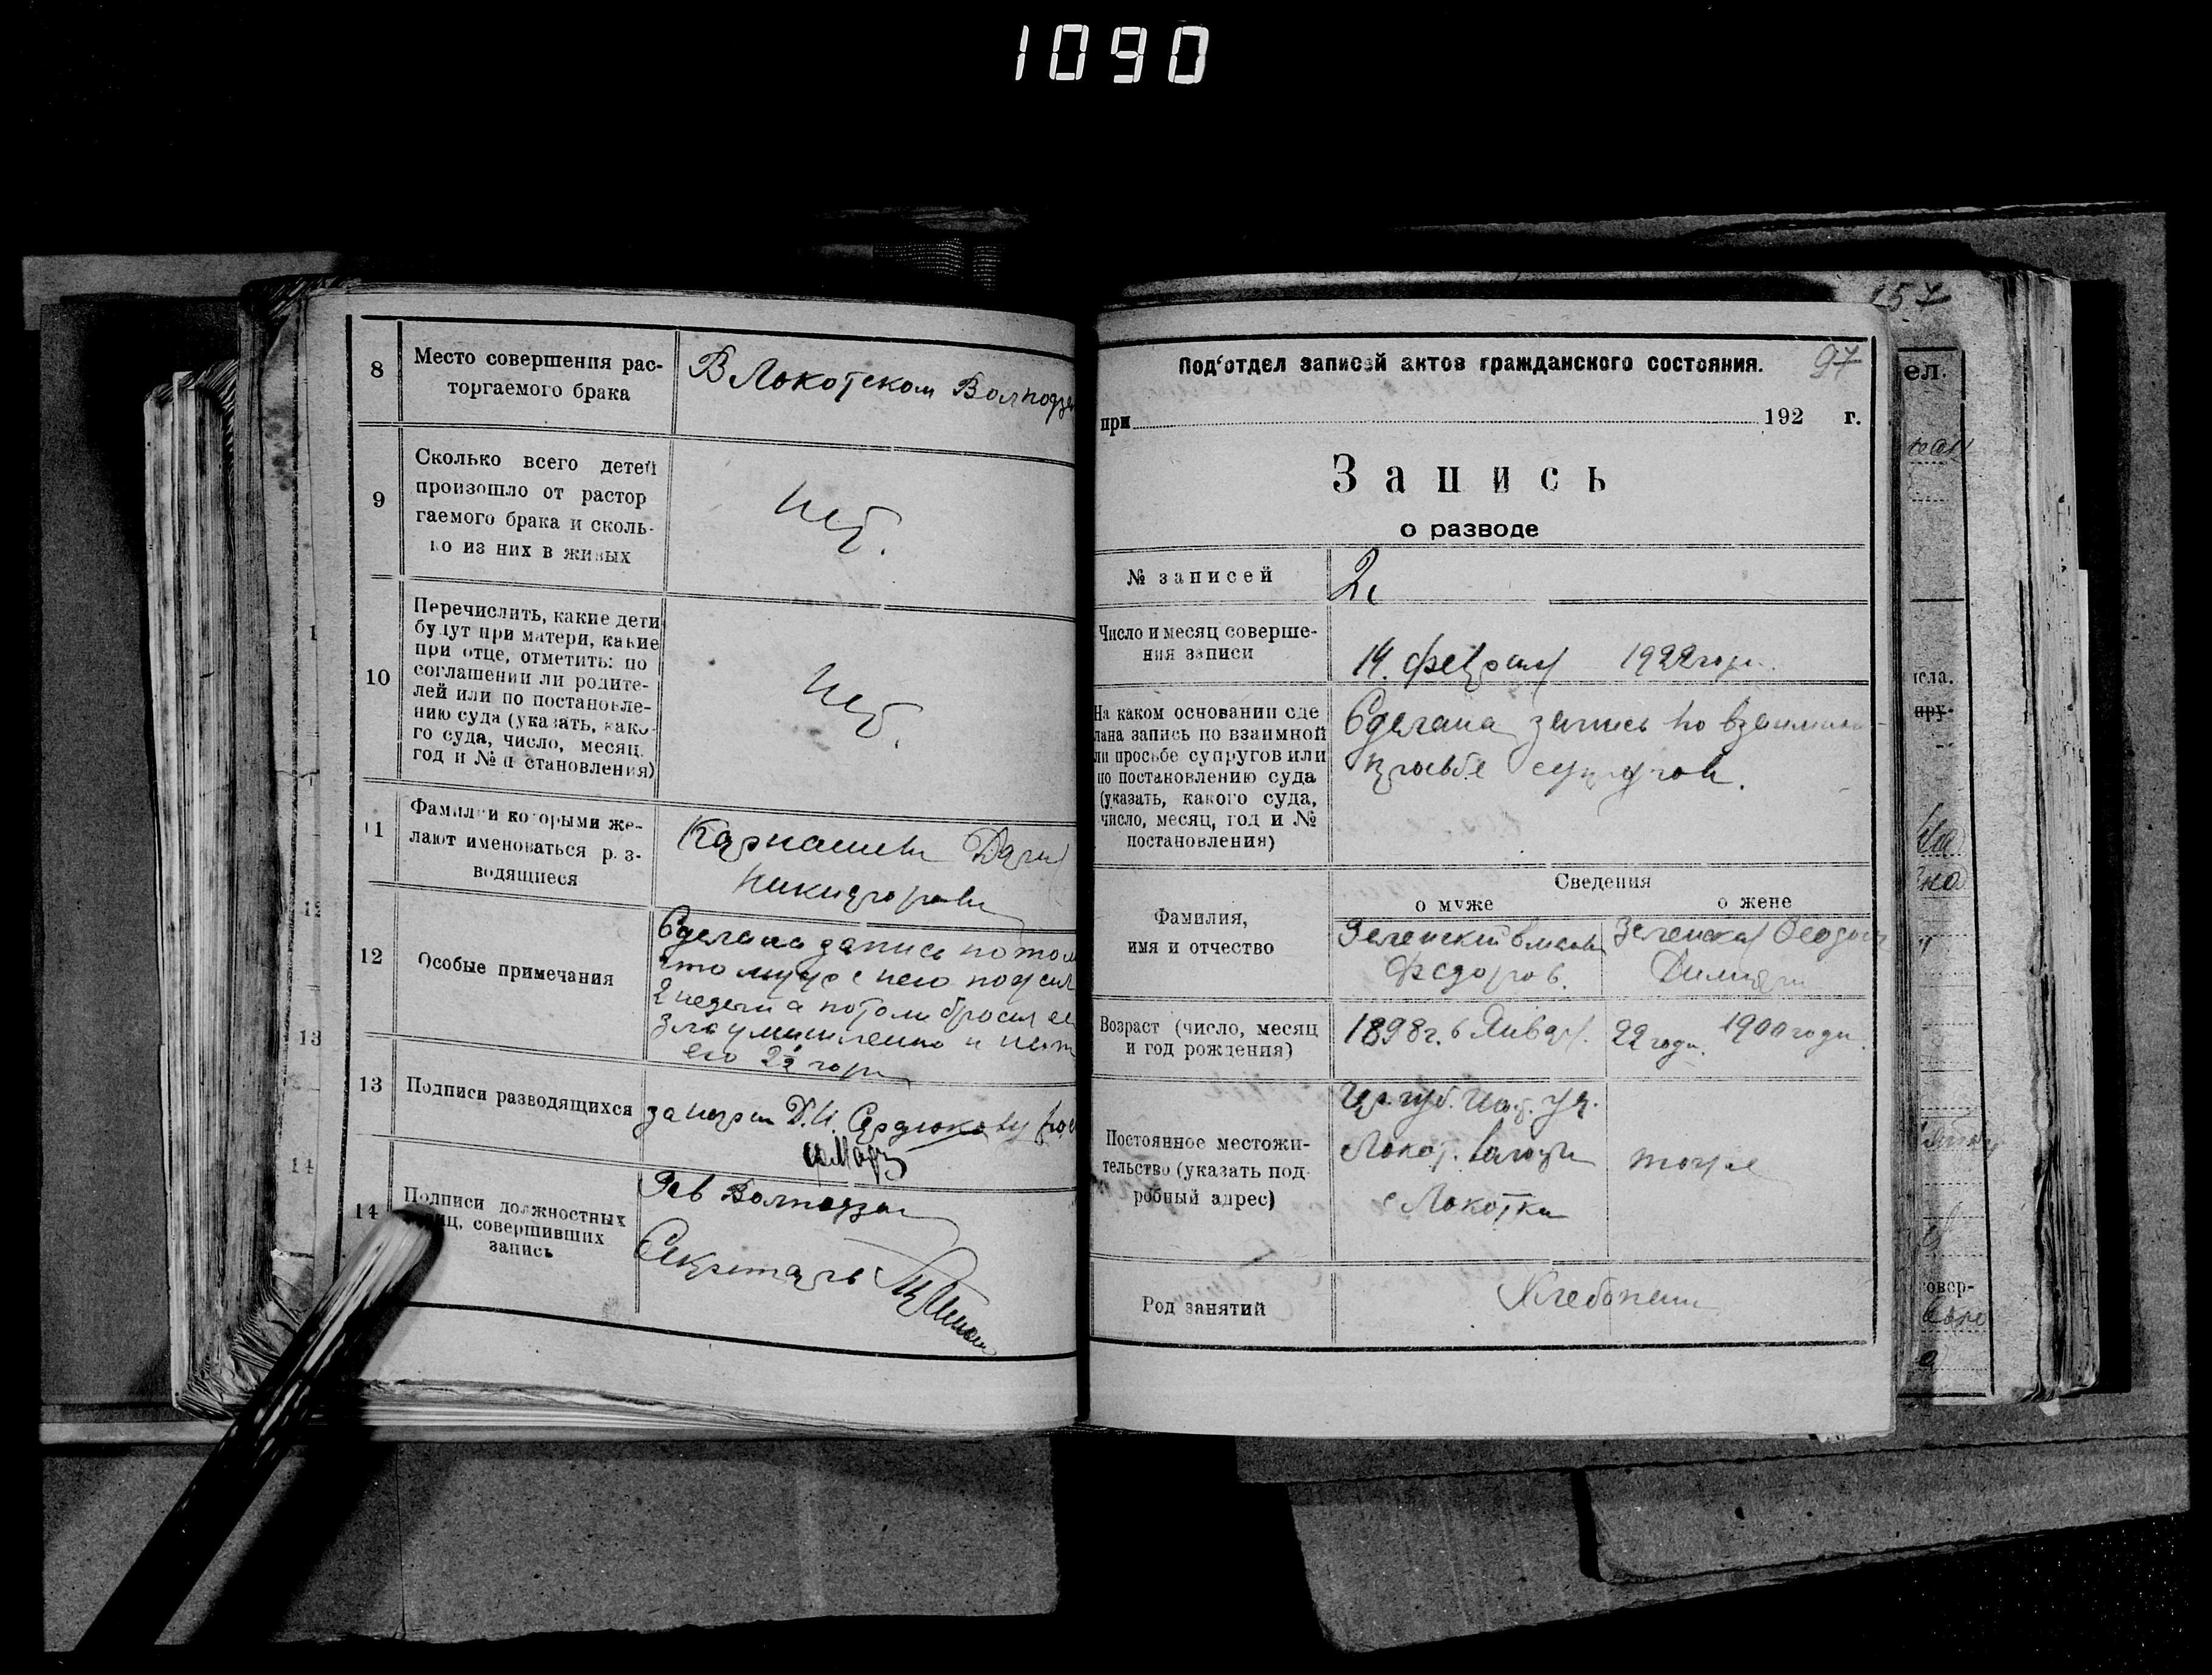 1090
8
Место совершения рас-
торгаемого брака
В Локотском Волподзе
9
Сколько всего детей
произошло от растор
гаемого брака и сколь-
ко из них в живых
Нет.
10
Перечислить, какие дети
будут при матери, какие
при отце, отметить: по
соглашении ли родите-
лей или по постановле-
нию суда (указать, како-
го суда, число, месяц,
год и № п становления)
Нет.
11
Фамилии которыми же-
лают именоваться р з-
водящиеся
Никифорова
12
Особые примечания
Сделана запись потом
что муж с нею пожил
2 недели а потом бросил ее
злоумышленно и нет
его 2½ года
13
Подписи разводящихся
14
Подписи должностных
лиц, совершивших
запись
Зав Волподзаг
Секретарь
157
97
Под‘отдел записей актов гражданского состояния.
при 192 г.
Запись
о разводе
№ записей
2
Число и месяц соверше-
ния записи
14. февраля 1922 года.
На каком основании сде
лана запись по взаимной
ли просьбе супругов или
по постановлению суда
(указать, какого суда,
число, месяц, год и №
постановления)
Сделана запись по взаимной
просьбе супругов.
Сведения
о муже
о жене
Фамилия,
имя и отчество
Зеленский
Федоров.
Зеленская
Возраст (число, месяц
и год рождения)
1898 г. 6 Января.
22 года. 1900 года.
Постоянное местожи-
тельство (указать под-
робный адрес)
Локот. волости
с Локотка
тоже
Род занятий
Хлебопаш
ел.
исла.
пру-
овер-
13
14